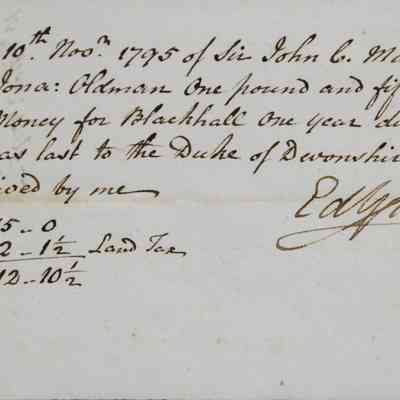 10th. Novr. 1795 of Sir John C. Mo
Jona: Oldman One pound and fif
Money for Blackhall One year du
as last to the Duke of Devonshir
ived by me
5 - 0
2 - 1½ Land Tax
12 - 10½